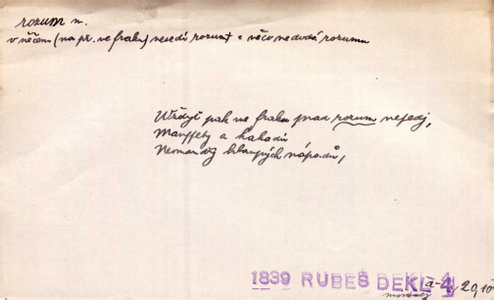 rozum m.
v něčem (na př. ve fraku) nesedí rozum = něco nedodá rozumu
Wždyť pak we fraku snad rozum nesedj,
Manžety a kabadů
Nemandg hlaupých nápadů,
1839 RUBEŠ DEKL 4 a-4, 20, 10